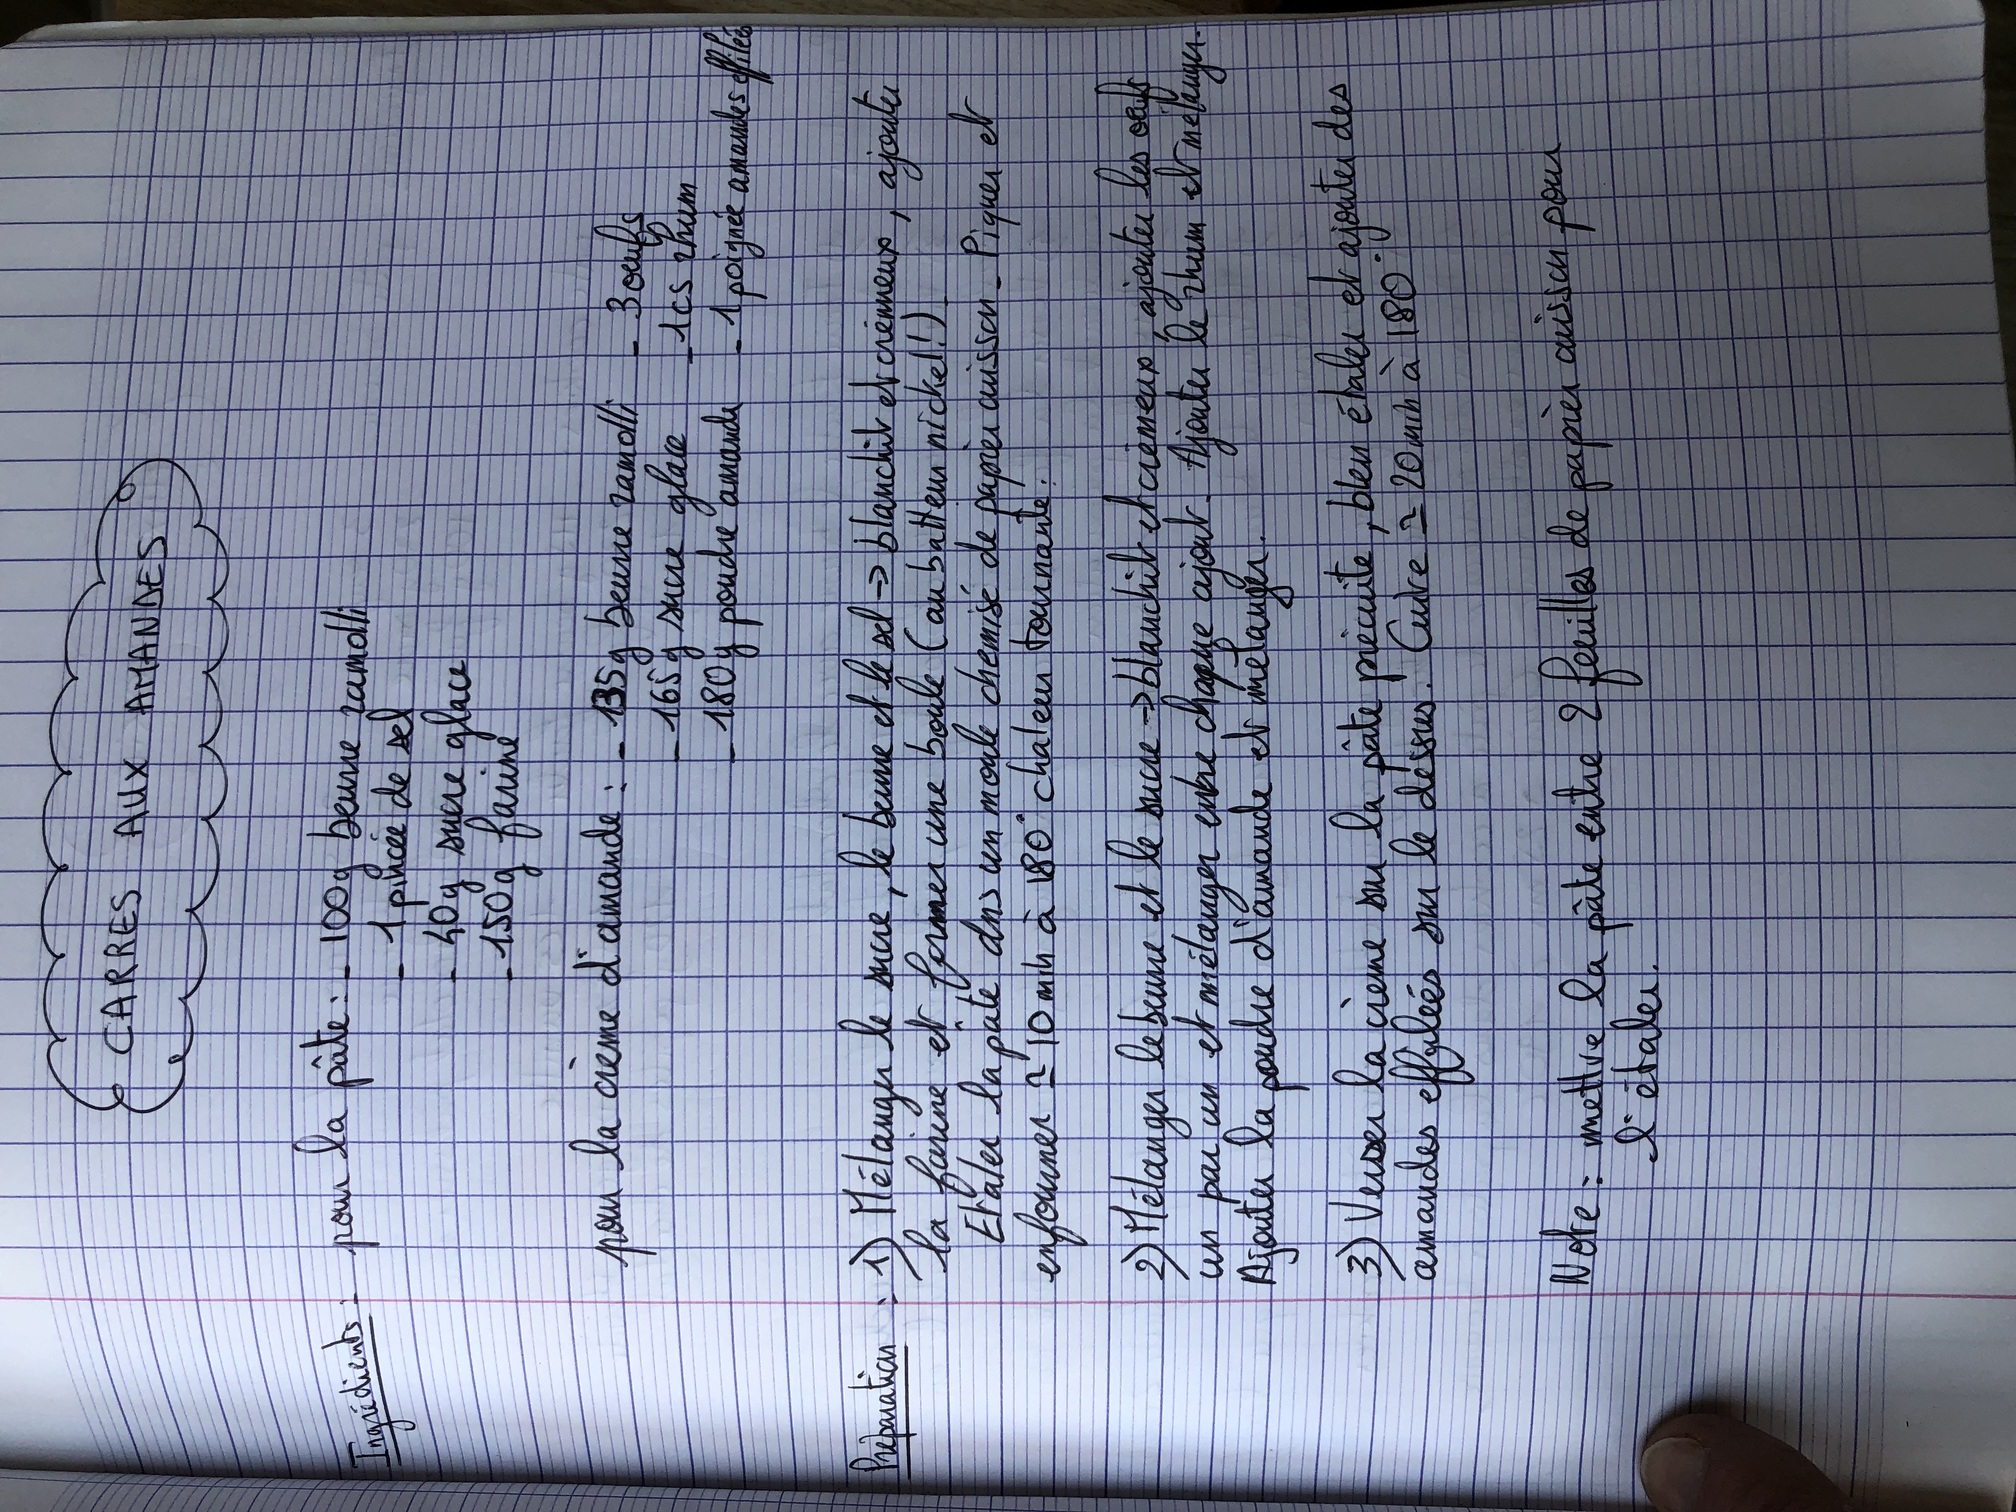 CARRES AUX AMANDES
Ingrédients : pour la pâte : - 100g beurre ramolli
- 1 pincée de sel
- 40g sucre glace
- 150g farine
pour la crème d'amande : - 135g beurre ramolli - 3 oeufs
- 165g sucre glace - 1cs rhum
- 180g poudre amande - 1 poignée amandes effilés
Préparation : 1) Mélanger le sucre, le beurre et le sel → blanchit et crémeux, ajouter
la farine et former une boule (au batteur nickel!)
Etaler la pâte dns un moule chemisé de papier cuisson - Piquer et
enfourner ≃ 10 min à 180° chaleur tournante.
2) Mélanger le beurre et le sucre → blanchit et crémeux, ajouter les oeufs
un par un et mélanger entre chaque ajout - Ajouter le rhum et mélanger.
Ajouter la poudre d'amande et mélanger.
3) Verser la crème sur la pâte précuite, bien étaler et ajouter des
amandes effilées sur le dessus. Cuire ≃ 20 min à 180°.
Note : mettre la pâte entre 2 feuilles de papier cuisson pour
l'étaler.